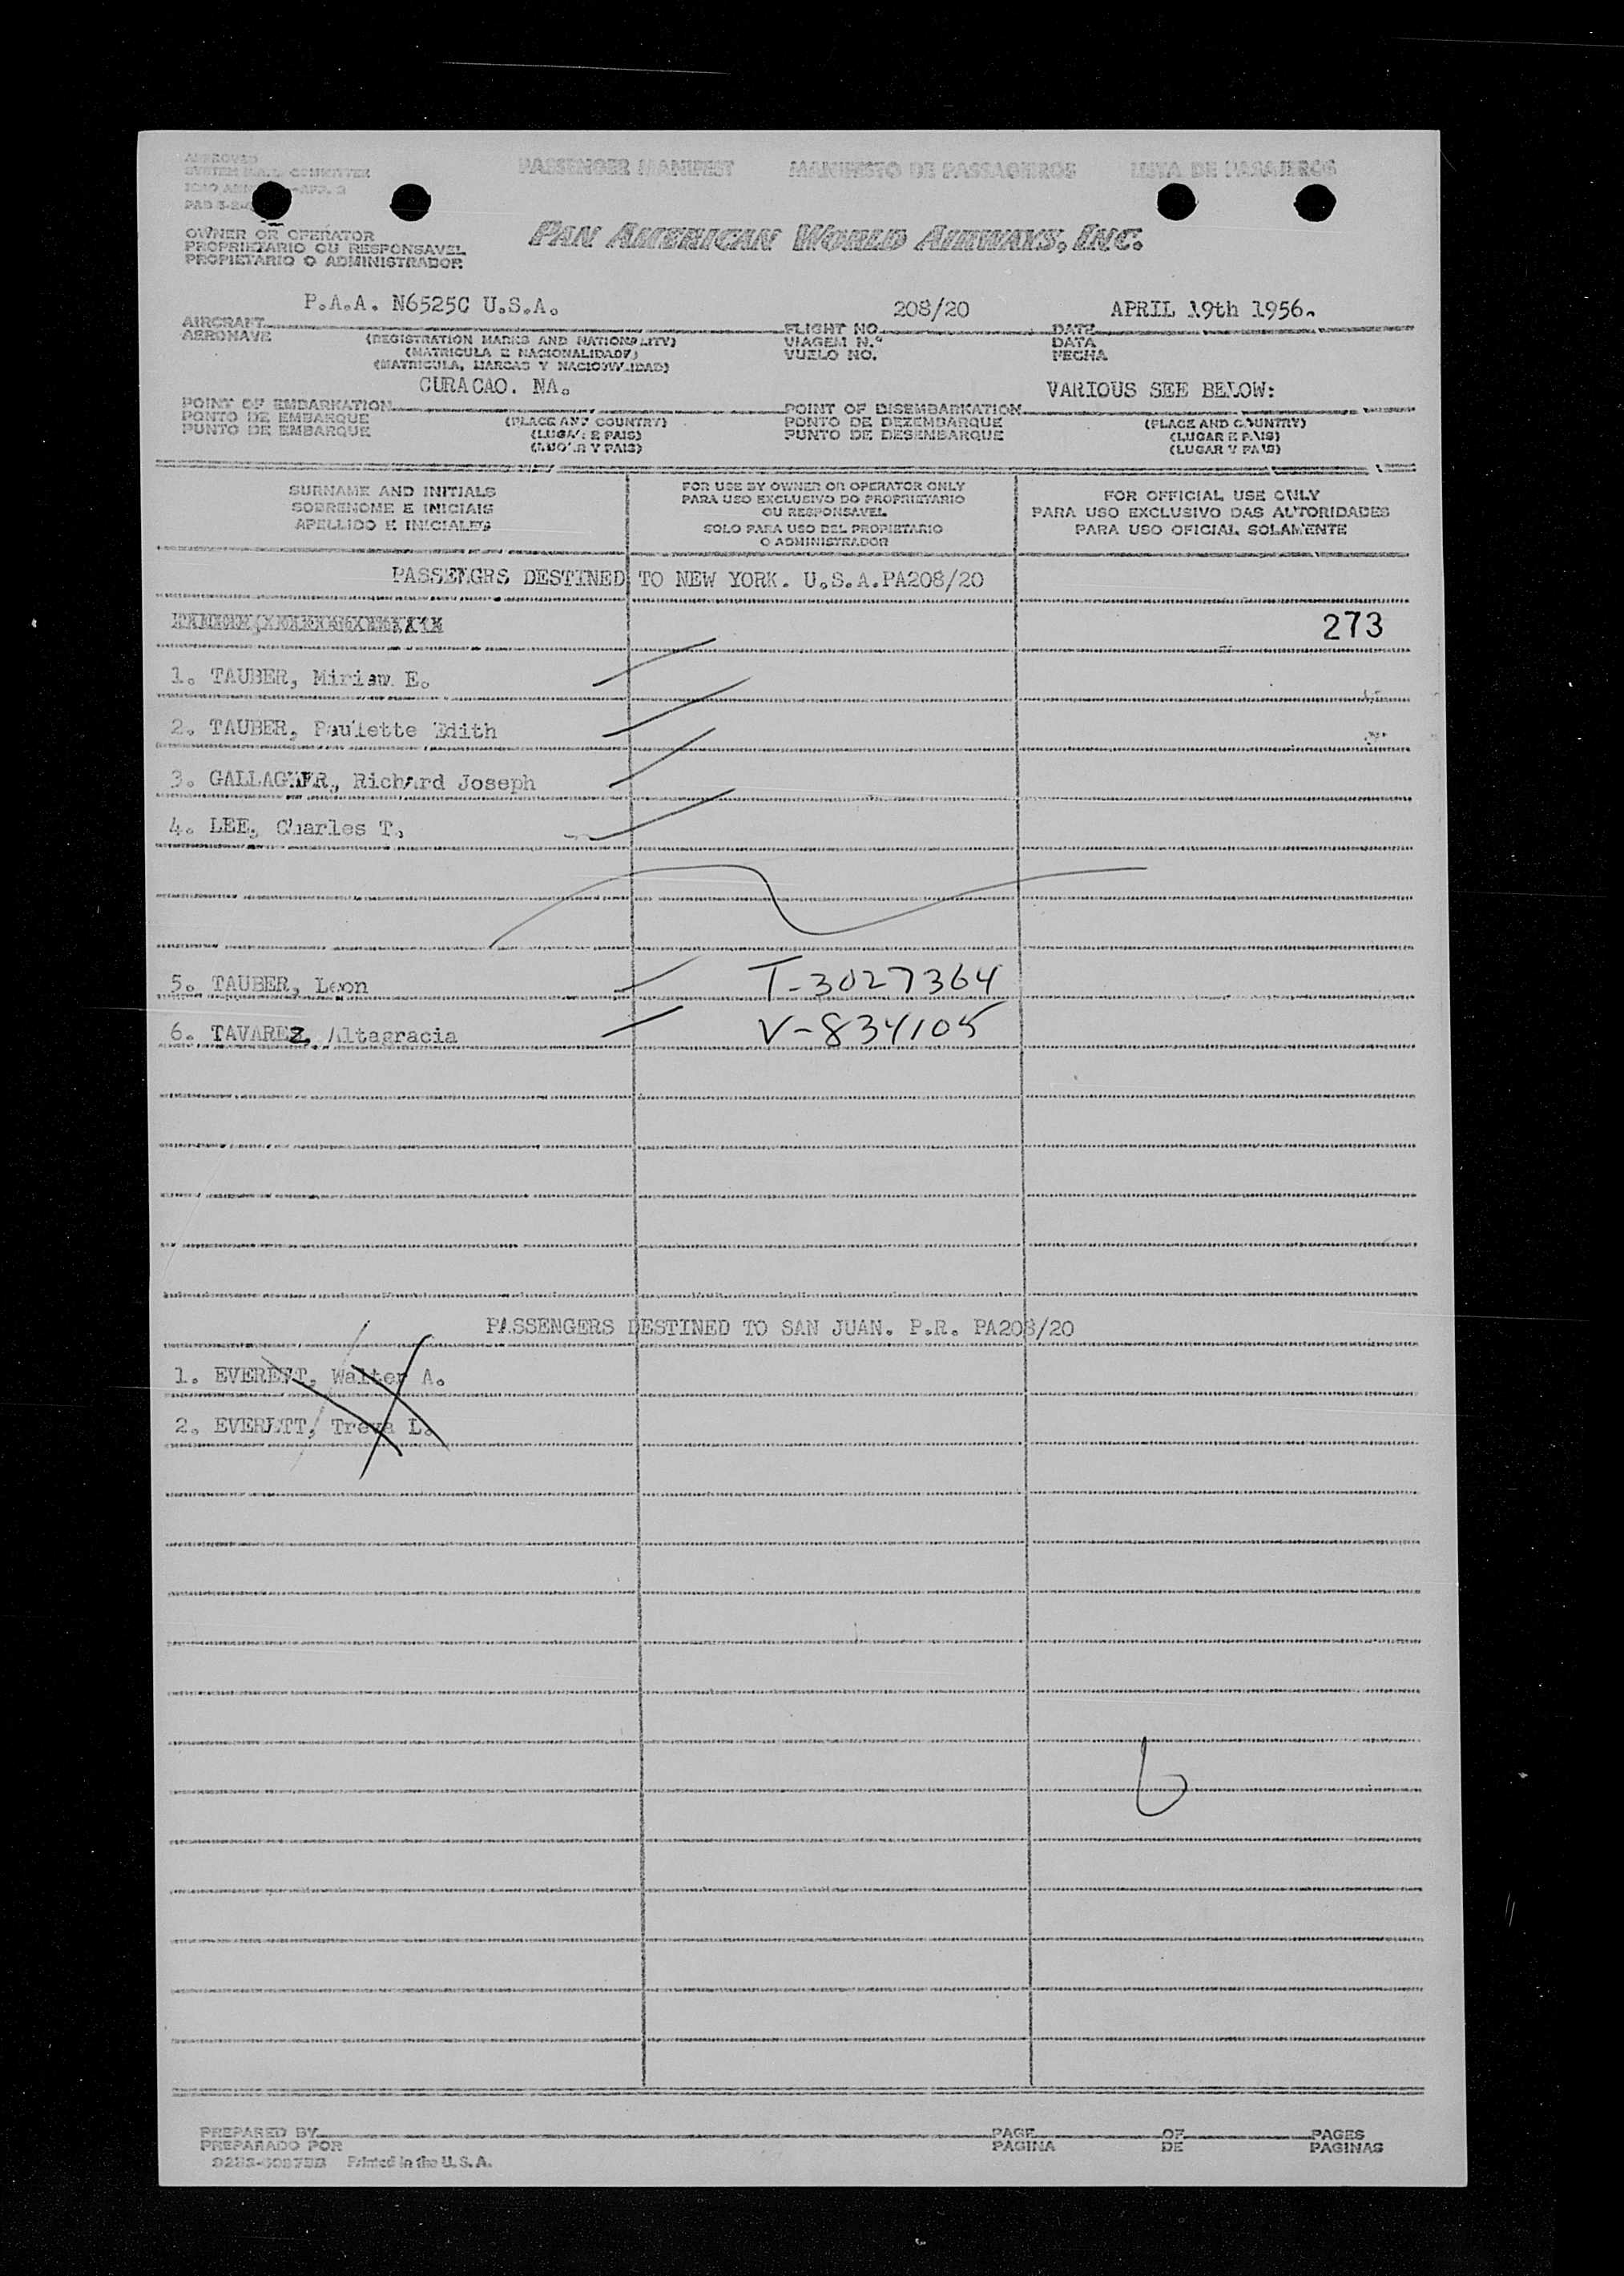 APPROVED
SYSTEM COMMITTEE
PAD 3-2-
PASSENGER MANIFEST MANIFESTO DE PASSAGEIROS LISTA DE PASAJEROS
OWNER OR OPERATOR
PROPRIETARIO OU RESPONSAVEL
PROPIETARIO O ADMINISTRADOR
PAN AMERICAN WORLD AIRWAYS, INC.
P.A.A. N6525C U.S.A. 208/20 APRIL 19th 1956.
AIRCRAFT FLIGHT NO. DATE
AERONAVE (REGISTRATION MARKS AND NATIONALITY) VIAGEM N.º DATA
(MATRICULA E NACIONALIDADE) VUELO NO. FECHA
(MATRICULA, MARCAS Y NACIONALIDAD)
CURACAO. NA. VARIOUS SEE BELOW:
POINT OF EMBARKATION POINT OF DISEMBARKATION
PONTO DE EMBARQUE (PLACE AND COUNTRY) PONTO DE DEZEMBARQUE (PLACE AND COUNTRY)
PUNTO DE EMBARQUE (LUGAR E PAIS) PUNTO DE DESEMBARQUE (LUGAR E PAIS)
(LUGAR Y PAIS) (LUGAR Y PAIS)
SURNAME AND INITIALS
SOBRENOME E INICIAIS
APELLIDO E INICIALES
FOR USE BY OWNER OR OPERATOR ONLY
PARA USO EXCLUSIVO DO PROPRIETARIO
OU RESPONSAVEL
SOLO PARA USO DEL PROPIETARIO
O ADMINISTRADOR
FOR OFFICIAL USE ONLY
PARA USO EXCLUSIVO DAS AUTORIDADES
PARA USO OFICIAL SOLAMENTE
PASSENGRS DESTINED TO NEW YORK. U.S.A.PA208/20
273
1. TAUBER, Miriam E.
2. TAUBER, Paulette Edith
3. GALLAGHER, Richard Joseph
4. LEE, Charles T.
5. TAUBER, Leon T-3027364
6. TAVAREZ, Altagracia V-834105
PASSENGERS DESTINED TO SAN JUAN. P.R. PA208/20
1. EVERETT, Walter A.
2. EVERETT, Treva L.
6
PREPARED BY PAGE OF PAGES
PREPARADO POR PAGINA DE PAGINAS
Printed in the U.S.A.